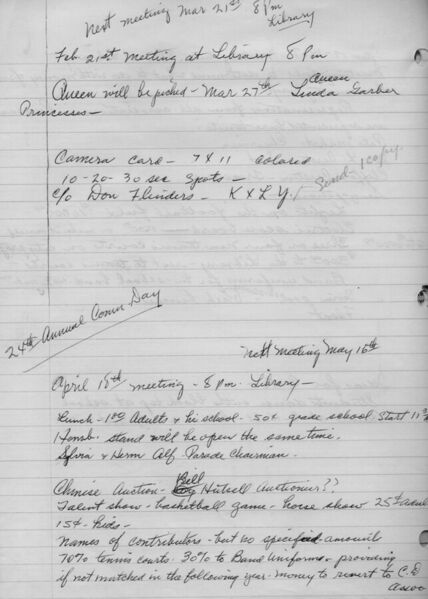 Next meeting Mar 21st 8 pm
Library
Feb. 21st Meeting at Library 8 Pm
Queen will be picked - Mar 27th Linda Garber
Queen
Princesses -
Camera card - 7 X 11 colored
10 - 20 - 30 sec spots -
Send 1 copy.
c/o Don Flinders - K X L Y /
24th Annual Comm Day
Next Meeting May 16th
April 18th meeting - 8 pm. Library -
Lunch - 1.00 Adults & hi school - 50¢ grade school. Start 11
Hamb. stand will be open the same time.
Sylvia & Herm Alf - Parade Chairman.
Chinese Auction - Bill Hutsell Auctioneer??
Talent show - basketball game - horse show 25¢ adult
15¢ - kids -
Names of contributors - but no specified amount
70% tennis courts. 30% to Band Uniforms - providing
if not matched in the following year - money to revert to C.D
assoc